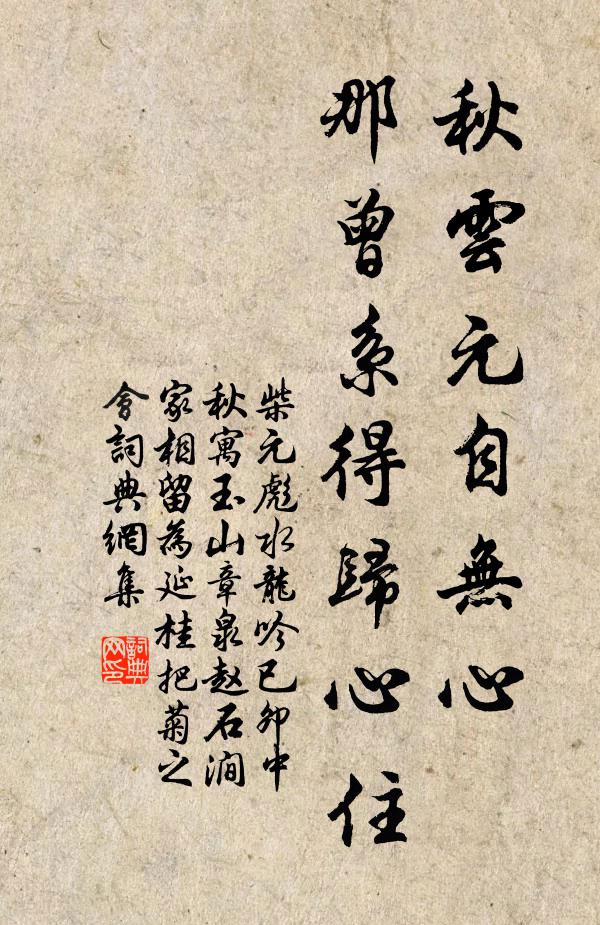 秋雲元自無心
那曾系得歸心住
柴元彪水龍吟己卯中
秋寓玉山章泉赵石澗
家相留為延桂把菊之
會詞典網集
詞典
网印